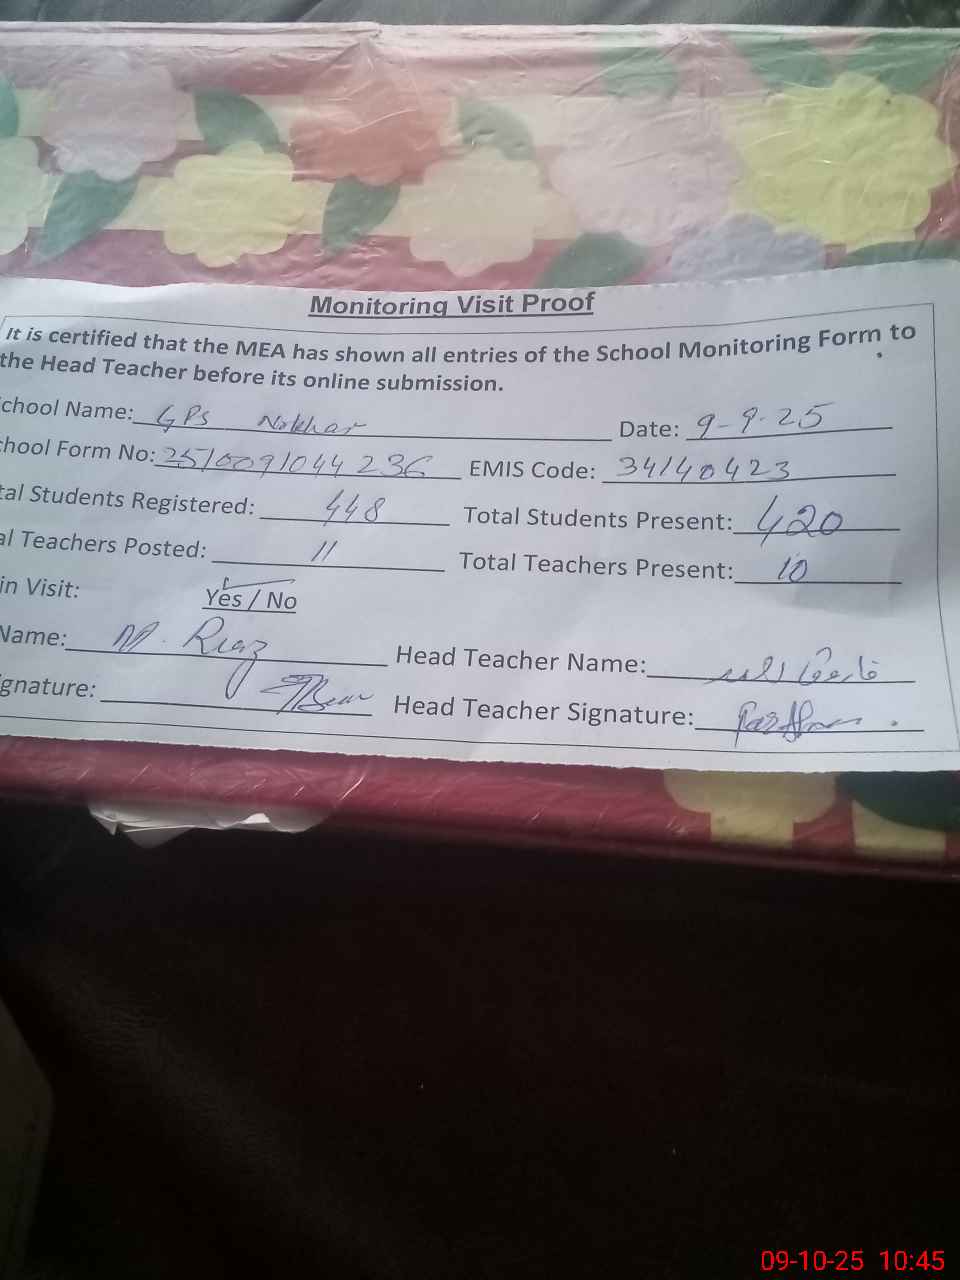 Monitoring Visit Proof
It is certified that the MEA has shown all entries of the School Monitoring Form to
the Head Teacher before its online submission.
chool Name: GPS Nokhar Date: 9-9-25
hool Form No: 2510091044236 EMIS Code: 34140423
tal Students Registered: 448 Total Students Present: 420
al Teachers Posted: 11 Total Teachers Present: 10
in Visit: Yes / No
Name: M. Riaz Head Teacher Name:
gnature: Head Teacher Signature:
09-10-25 10:45